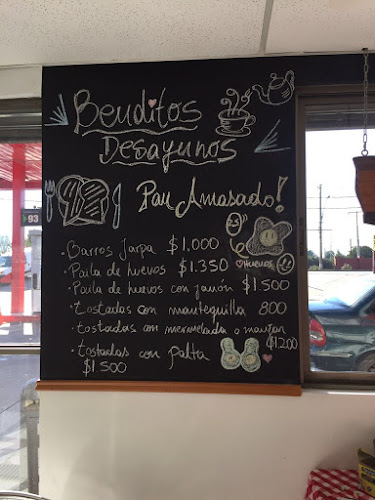 Benditos
Desayunos
Pan Amasado!
Huevos
· Barros Jarpa $1.000
· Paila de huevos $1.350
· Paila de huevos con jamón $1.500
· tostadas con mantequilla 800
· tostadas con mermelada o manjar
$1200
· tostadas con palta
$1500
93